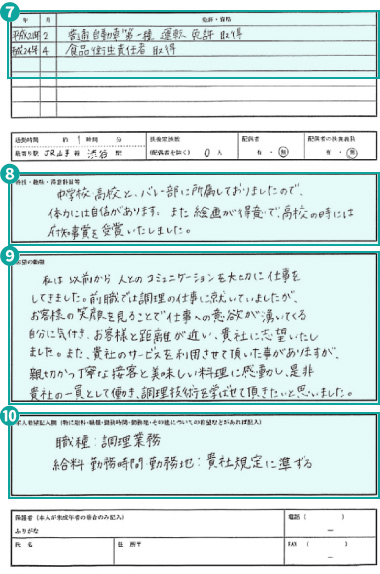 7
年 月 免許・資格
平成22年 2 普通自動車第一種 運転免許 取得
平成24年 4 食品衛生責任者 取得
通勤時間 約 1 時間 分
扶養家族数
配偶者
配偶者の扶養義務
最寄り駅 JR山手線 渋谷 駅
(配偶者を除く) 0 人
有・無
有・無
8
中学校、高校と、バレー部に所属しておりましたので、
体力には自信があります。また絵画が得意で、高校の時には
府知事賞を受賞いたしました。
9
志望の動機
私は以前から人とのコミュニケーションを大切に仕事を
してきました。前職では調理の仕事に就いていましたが、
お客様の笑顔を見ることで仕事への意欲が湧いてくる
自分に気付き、お客様と距離が近い、貴社に志望いたし
ました。また、貴社のサービスを利用させて頂いた事がありますが、
親切かつ丁寧な接客と美味しい料理に感動し、是非
貴社の一員として働き、調理技術を学ばせて頂きたいと思いました。
10
本人希望記入欄 (特に給料・職種・勤務時間・勤務地・その他についての希望などがあれば記入)
職種:調理業務
給料 勤務時間 勤務地:貴社規定に準ずる
保護者 (本人が未成年者の場合のみ記入)
電話 ( )
ふりがな
氏 名
住 所 〒
FAX ( )